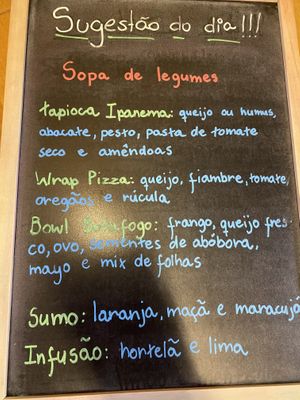 Sugestão do dia!!!
Sopa de legumes
tapioca Ipanema: queijo ou humus,
abacate, pesto, pasta de tomate
seco e amêndoas
Wrap Pizza: queijo, fiambre, tomate,
oregãos e rúcula
Bowl Botafogo: frango, queijo fres-
co, ovo, sementes de abóbora,
mayo e mix de folhas
Sumo: laranja, maçã e maracujá
Infusão: hortelã e lima